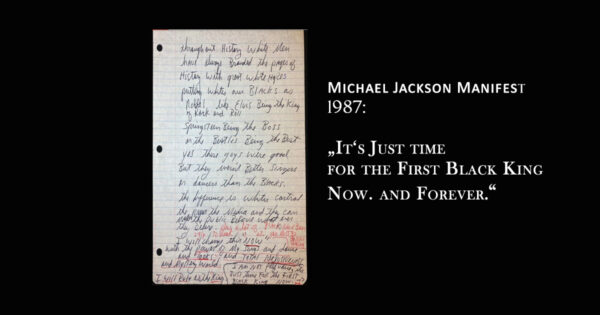 throughout History white Men
have always Branded the pages of
History with great white Hopes
putting whites over Blacks as
Nobel, like Elvis Being the King
of Rock and Roll
Springsteen Being the Boss
on the Beatles Being the Best
yes these guys were good
But they wernt Better singers
or dancers than the Blacks.
the difference is whites control
the Media and they can
the public believe what
I will change this NOW
with the power of My songs and dance
and and Total
and World
I will Rule as the King
I AM NOT
JUST time FOR the FIRST
BLACK KING NOW
MICHAEL JACKSON MANIFEST
1987:
„IT‘S JUST TIME
FOR THE FIRST BLACK KING
NOW. AND FOREVER.“